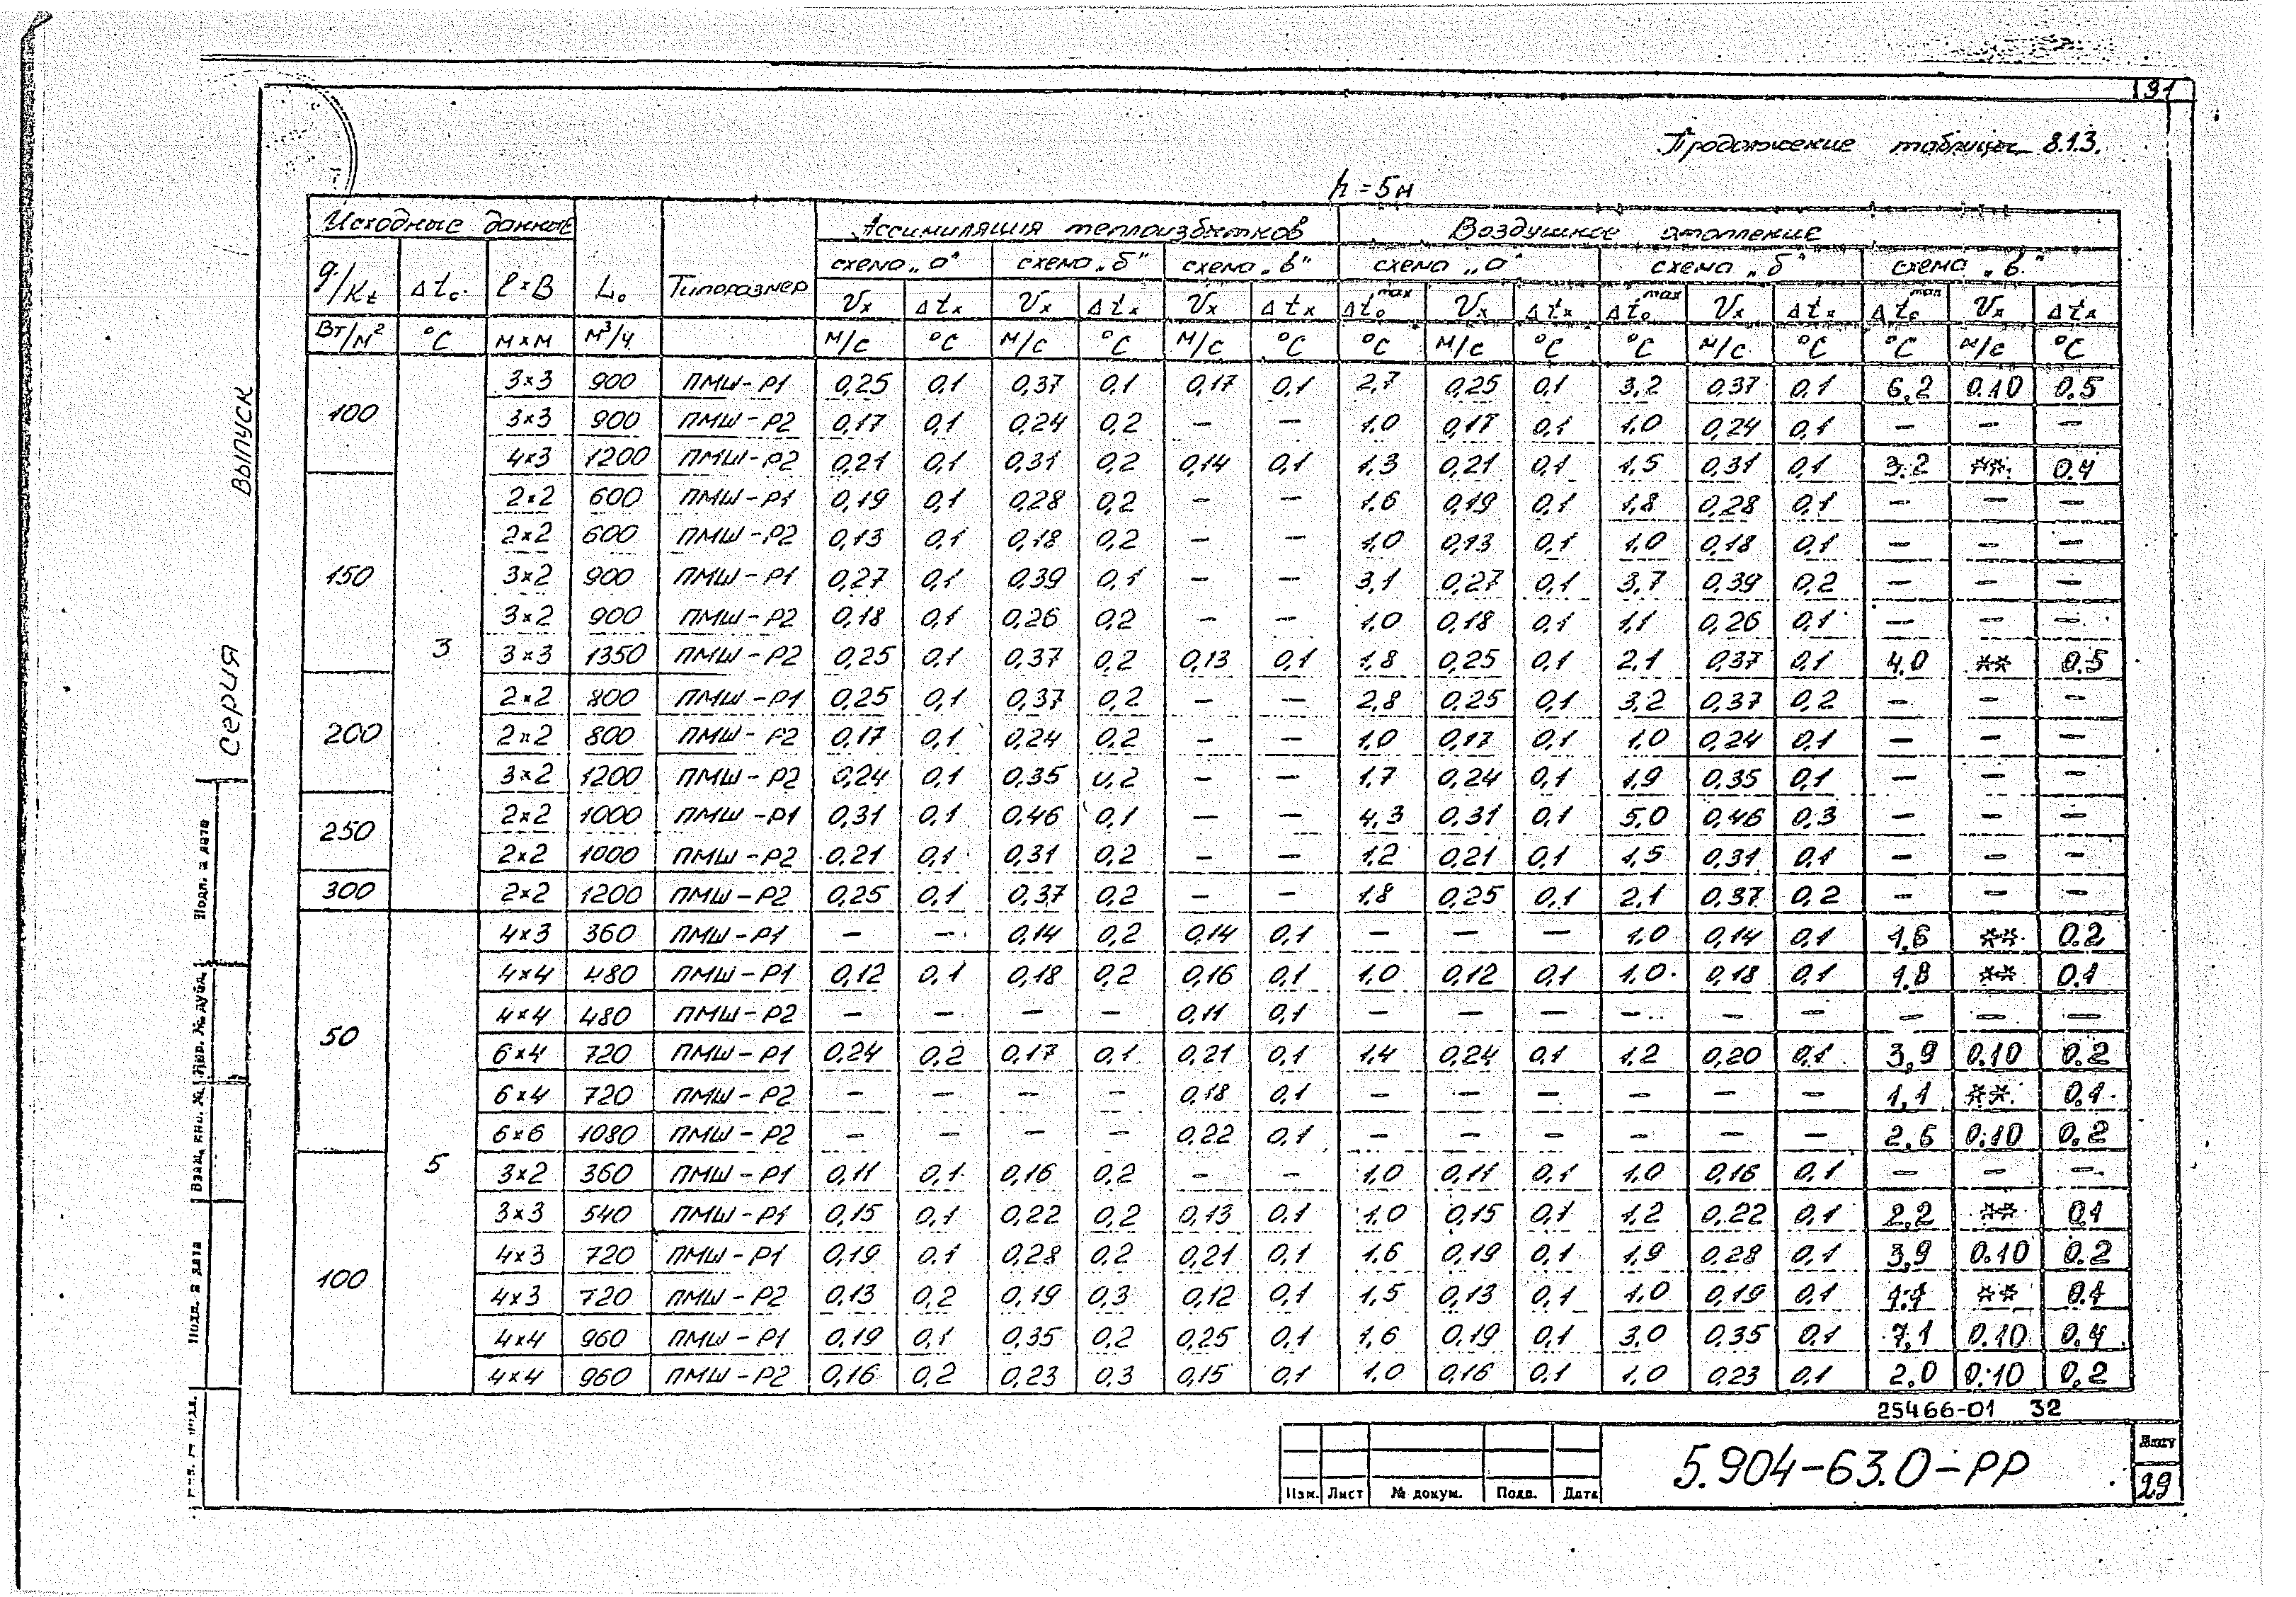 31
Продолжение таблицы 8.1.3.
h = 5м
Исходные данные Ассимиляция теплоизбытков Воздушное отопление
схема „а“ схема „б“ схема „в“ схема „а“ схема „б“ схема „в“
q/Kt Δtс. l×B Lо Типоразмер Vx Δtx Vx Δtx Vx Δtx Δtо max Vx Δtx Δtо max Vx Δtx Δtо max Vx Δtx
Вт/м² °С м×м м³/ч м/с °С м/с °С м/с °С °С м/с °С °С м/с °С °С м/с °С
100 3 3×3 900 ПМШ-Р1 0,25 0,1 0,37 0,1 0,17 0,1 2,7 0,25 0,1 3,2 0,37 0,1 6,2 0.10 0.5
3×3 900 ПМШ-Р2 0,17 0,1 0,24 0,2 – – 1,0 0,17 0,1 1,0 0,24 0,1 – – –
4×3 1200 ПМШ-Р2 0,21 0,1 0,31 0,2 0,14 0,1 1,3 0,21 0,1 1,5 0,31 0,1 3.2 ** 0.4
150 2×2 600 ПМШ-Р1 0,19 0,1 0,28 0,2 – – 1,6 0,19 0,1 1,8 0,28 0,1 – – –
2×2 600 ПМШ-Р2 0,13 0,1 0,18 0,2 – – 1,0 0,13 0,1 1,0 0,18 0,1 – – –
3×2 900 ПМШ-Р1 0,27 0,1 0,39 0,1 – – 3,1 0,27 0,1 3,7 0,39 0,2 – – –
3×2 900 ПМШ-Р2 0,18 0,1 0,26 0,2 – – 1,0 0,18 0,1 1,1 0,26 0,1 – – –
3×3 1350 ПМШ-Р2 0,25 0,1 0,37 0,2 0,13 0,1 1,8 0,25 0,1 2,1 0,37 0,1 4.0 ** 0.5
200 2×2 800 ПМШ-Р1 0,25 0,1 0,37 0,2 – – 2,8 0,25 0,1 3,2 0,37 0,2 – – –
2×2 800 ПМШ-Р2 0,17 0,1 0,24 0,2 – – 1,0 0,17 0,1 1,0 0,24 0,1 – – –
3×2 1200 ПМШ-Р2 0,24 0,1 0,35 0,2 – – 1,7 0,24 0,1 1,9 0,35 0,1 – – –
250 2×2 1000 ПМШ-Р1 0,31 0,1 0,46 0,1 – – 4,3 0,31 0,1 5,0 0,46 0,3 – – –
2×2 1000 ПМШ-Р2 0,21 0,1 0,31 0,2 – – 1,2 0,21 0,1 1,5 0,31 0,1 – – –
300 2×2 1200 ПМШ-Р2 0,25 0,1 0,37 0,2 – – 1,8 0,25 0,1 2,1 0,37 0,2 – – –
50 5 4×3 360 ПМШ-Р1 – – 0,14 0,2 0,14 0,1 – – – 1,0 0,14 0,1 1.6 ** 0.2
4×4 480 ПМШ-Р1 0,12 0,1 0,18 0,2 0,16 0,1 1,0 0,12 0,1 1,0 0,18 0,1 1.8 ** 0.1
4×4 480 ПМШ-Р2 – – – – 0,11 0,1 – – – – – – – – –
6×4 720 ПМШ-Р1 0,24 0,2 0,17 0,1 0,21 0,1 1,4 0,24 0,1 1,2 0,20 0,1 3,9 0.10 0.2
6×4 720 ПМШ-Р2 – – – – 0,18 0,1 – – – – – – 1,1 ** 0.1
6×6 1080 ПМШ-Р2 – – – – 0,22 0,1 – – – – – – 2,6 0.10 0.2
100 3×2 360 ПМШ-Р1 0,11 0,1 0,16 0,2 – – 1,0 0,11 0,1 1,0 0,16 0,1 – – –
3×3 540 ПМШ-Р1 0,15 0,1 0,22 0,2 0,13 0,1 1,0 0,15 0,1 1,2 0,22 0,1 2,2 ** 0.1
4×3 720 ПМШ-Р1 0,19 0,1 0,28 0,2 0,21 0,1 1,6 0,19 0,1 1,9 0,28 0,1 3,9 0.10 0.2
4×3 720 ПМШ-Р2 0,13 0,2 0,19 0,3 0,12 0,1 1,5 0,13 0,1 1,0 0,19 0,1 1.1 ** 0.1
4×4 960 ПМШ-Р1 0,19 0,1 0,35 0,2 0,25 0,1 1,6 0,19 0,1 3,0 0,35 0,1 7,1 0.10 0.4
4×4 960 ПМШ-Р2 0,16 0,2 0,23 0,3 0,15 0,1 1,0 0,16 0,1 1,0 0,23 0,1 2.0 0.10 0.2
25466-01 32
5.904-63.0-РР
Лист
29
Изм. Лист № докум. Подп. Дата
Серия Выпуск
Подп. и дата
Инв. № дубл.
Взам. инв. №
Подп. и дата